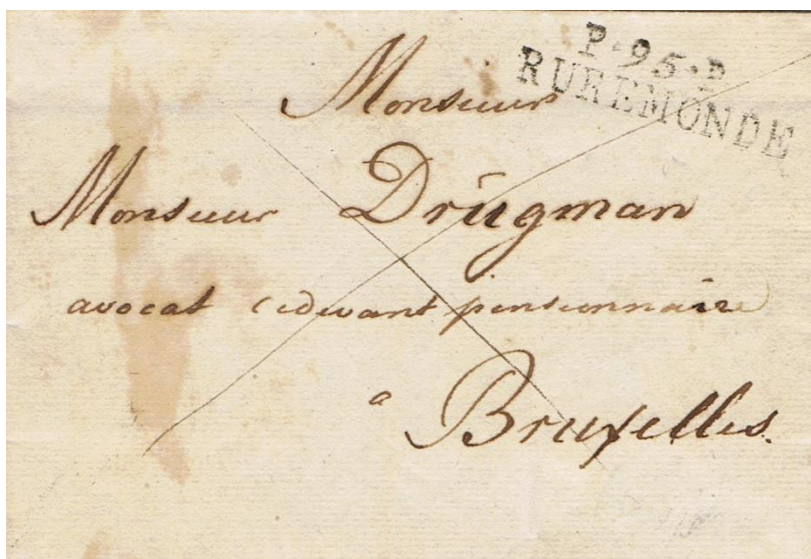 P.95.P
RUREMONDE
Monsieur
Monsieur Drügman
avocat cidevant pensionnaire
a Bruxelles.